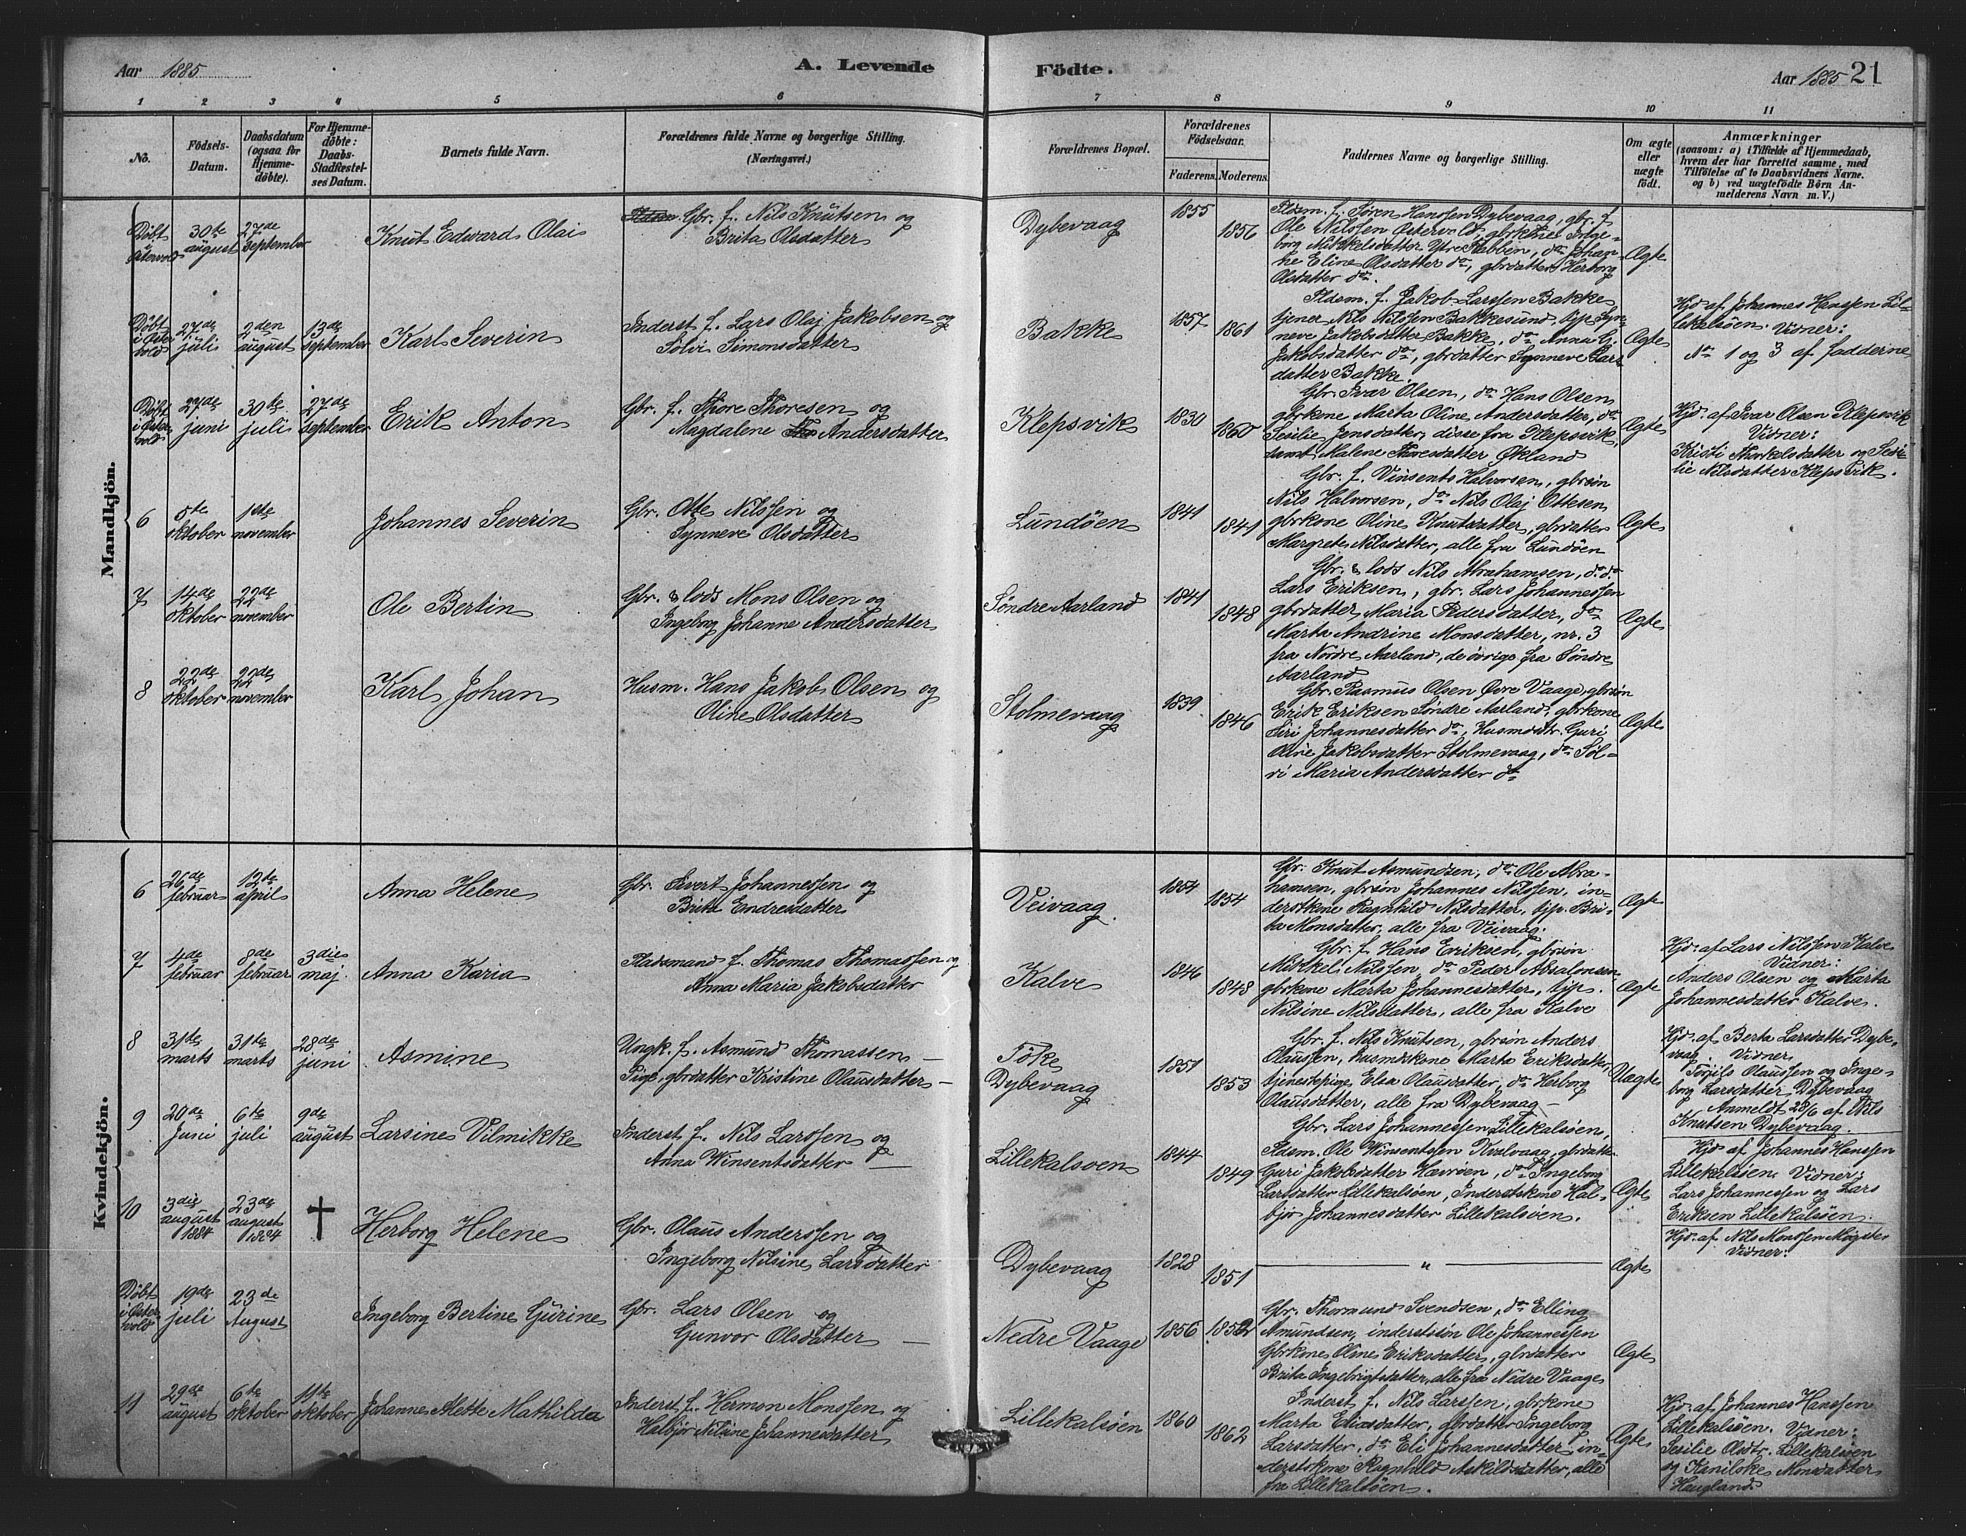 Aar 1885
A. Levende
Födte.
Aar 1885 21
1 2 3 4 5 6 7 8 9 10 11
No.
Födsels-
Datum.
Daabsdatum
(ogsaa for
Hjemme-
döbte).
For Hjemme-
döbte:
Daabs-
Stadfæstel-
ses Datum.
Barnets fulde Navn.
Forældrenes fulde Navne og borgerlige Stilling.
(Næringsvei.)
Forældrenes Bopæl.
Forældrenes
Födselsaar.
Faderens. Moderens.
Faddernes Navne og borgerlige Stilling.
Om ægte
eller
uægte
födt.
Anmærkninger
(saasom: a) i Tilfælde af Hjemmedaab,
hvem der har forrettet samme, med
Tilföielse af to Daabsvidners Navne.
og b) ved uægtefödte Börn An-
melderens Navn m. V.)
Mandkjön.
Döbt
i
Østervold
30te
august
27de
september
Knut Edward Olai
Gbr. f. Nils Knutsen og
Brita Olsdatter
Dybevaag
1855
1856
Pldsm. f. Søren Hanssen Dybevaag, gbr. f.
Ole Nilssen Østervold, gbrkone Inge-
borg Mikkelsdatter Ytre Rabben, do Johan-
ne Eline Olsdatter do, gbrdatter Herborg
Olsdatter do.
Ægte
Döbt
i Øster
vold
27de
juli
2den
august
13de
september
Karl Severin
Inderst f. Lars Olaj Jakobsen og
Sølvi Simonsdatter
Bakke
1857
1861
Pldsm. f. Jakob Larssen Bakke,
tjener Nils Nilssen Bakkesund, tjp. Syn-
neve Jakobsdatter Bakke, do Anna G.
Jakobsdatter do, gbrdatter Synneve Lars
datter Bakke.
Ægte
Hjd. af Johannes Hanssen Lil-
lekalsøen. Vidner:
No 1 og 3 af Fadderne
Döbt
i Øster
vold
27de
juni
30te
juli
27de
september
Erik Anton
Gbr. f. Thore Thoresen og
Magdalene Andersdatter
Klepsvik
1830
1860
Gbr. Ivar Olsen, do Hans Olsen
gbrkone Marta Oline Andersdatter, do
Sesilie Jensdatter, disse fra Klepsvik,
samt Malene Thoresdatter Økland
Ægte
Hjd. af Ivar Olsen Klepsvik
Vidner:
Kristi Thorkelsdatter og Sesi-
lie Nilsdatter Klepsvik.
6
5te
oktober
1ste
november
Johannes Severin
Gbr. Otte Nilssen og
Synneve Olsdatter
Lundøen
1841
1841
Gbr. f. Vinsents Halvorsen, gbrsøn
Nils Halvorsen, do Nils Olaj Ottesen
gbrkone Oline Knutsdatter, gbrdatter
Margrete Nilsdatter, alle fra Lundøen
Ægte
7
14de
oktober
22de
november
Ole Bertin
Gbr. & lods Mons Olsen og
Ingeborg Johanne Andersdatter
Søndre Aarland
1841
1848
Gbr. & lods Nils Abrahamsen, do do
Lars Eriksen, gbr. Lars Johannessen
gbrdatter Maria Pedersdatter, do
Marta Andrine Monsdatter, nr. 3
fra Nordre Aarland, de øvrige fra Søndre
Aarland
Ægte
8
22de
oktober
22de
november
Karl Johan
Husm. Hans Jakob Olsen og
Oline Olsdatter
Stolmevaag
1839
1846
Gbr. Rasmus Olsen Øvre Vaage, gbrsøn
Erik Eriksen Søndre Aarland, gbrkone
Siri Johannesdatter do, Husmdtr. Guri
Oline Jakobsdatter Stolmevaag, do Søl-
vi Maria Andersdatter do
Ægte
Kvindekjön.
6
26de
februar
12te
april
Anna Helene
Gbr. Sivert Johannessen og
Brita Endresdatter
Veivaag.
1854
1854
Gbr. Knut Asmundsen, do Ole Abra-
hamsen, gbrsøn Johannes Nilssen, in-
derstkone Ragnhild Nilsdatter, tjp. Bri-
ta Monsdatter, alle fra Veivaag.
Ægte
7
4de
februar
8de
februar
3die
maj.
Anna Karia
Pladsmand f. Thomas Thomassen og
Anna Maria Jakobsdatter
Kalve
1846
1848
Gbr. f. Hans Eriksen, gbrsøn
Mikkel Nilssen, do Peder Absalonsen,
gbrkone Marta Johannesdatter, tjp.
Nilsine Nilsdatter, alle fra Kalve
Ægte
Hjd. af Lars Nilssen Kalve
Vidner:
Anders Olsen og Marta
Johannesdatter Kalve.
8
31te
marts
31te
marts
28de
juni
Asmine
Ungk. f. Asmund Thomassen —
Pige, gbrdatter Kristine Olausdatter —
Føke
Dybevaag
1851
1853
Gbr. f. Nils Knutsen, gbrsøn Anders
Olaussen, husmdkone Marta Eriksdatter,
tjenestepige Elsa Olausdatter, do Herborg
Olausdatter, alle fra Dybevaag —
Uægte
Hjd. af Berta Larsdatter Dybe-
vaag Vidner,
Torjils Olaussen og Inge-
borg Larsdatter Dybevaag
Anmeldt 28/6 af Nils
Knutsen Dybevaag.
9
20de
Juni
6te
juli
9de
august
Larsine Vilmikke
Inderst f. Nils Larssen og
Anna Winsentsdatter —
Lillekalsøen
1844
1849
Gbr. Lars Johannessen Lillekalsøen,
Pldsm. Ole Winsentsen Kvalvaag, gbrdatter
Guri Jakobsdatter Hevrøen, do Ingeborg
Larsdatter Lillekalsøen, Inderstkone Hal-
bjør Johannesdatter Lillekalsøen.
Ægte
Hjd af Johannes Hanssen
Lillekalsøen. Vidner:
Lars Johannessen og Lars
Eriksen Lillekalsøen
10
3die
august
1884
23de
august
1884
†
Herborg Helene
Gbr. Olaus Anderssen og
Ingeborg Nilsine Larsdatter
Dybevaag
1828
1851
— " —
Ægte
Hjd. af Nils Monssen Møgster
Vidner:
Döbt
i Øster
vold
19de
juli
23de
August
Ingeborg Bertine Gurine
Gbr. Lars Olsen og
Gunvor Olsdatter —
Nedre Vaage
1856
1852
Gbr. Thormund Svendsen, do Elling
Amundsen, inderstsøn Ole Johannessen
Gbrkone Oline Eriksdatter, gbrdatter
Brita Ingebrigtsdatter, alle fra Nedre Vaage
Ægte
11
29de
august
6te
oktober
11te
oktober
Johanne Alette Mathilda
Inderst f. Hermon Monssen og
Halbjør Nilsine Johannesdatter
Lillekalsøen
1860
1862
Inderst f. Nils Larssen, gbrkone
Marta Eliasdatter, gbrdatter Ingeborg
Larsdatter, do Eli Johannesdatter, in-
derstkone Ragnhild Askildsdatter, alle
fra Lillekalsøen.
Ægte
Hjd. af Johannes Hanssen
Lillekalsøen. Vidner:
Sesilie Olsdtr. Lillekalsøen
og Kanilske Monsdatter
Haugland